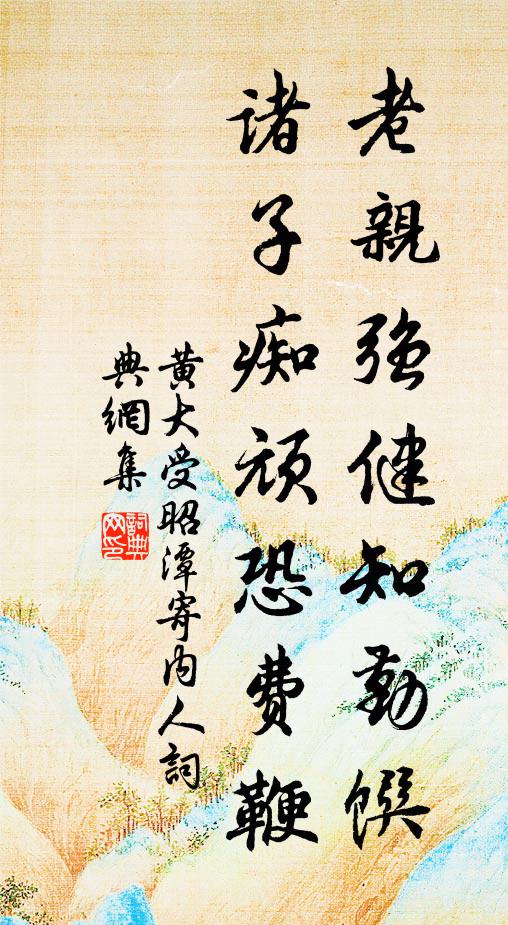 老親強健知勤饌
諸子痴頑恐費鞭
黃大受昭潭寄內人詞
典網集
詞典網印